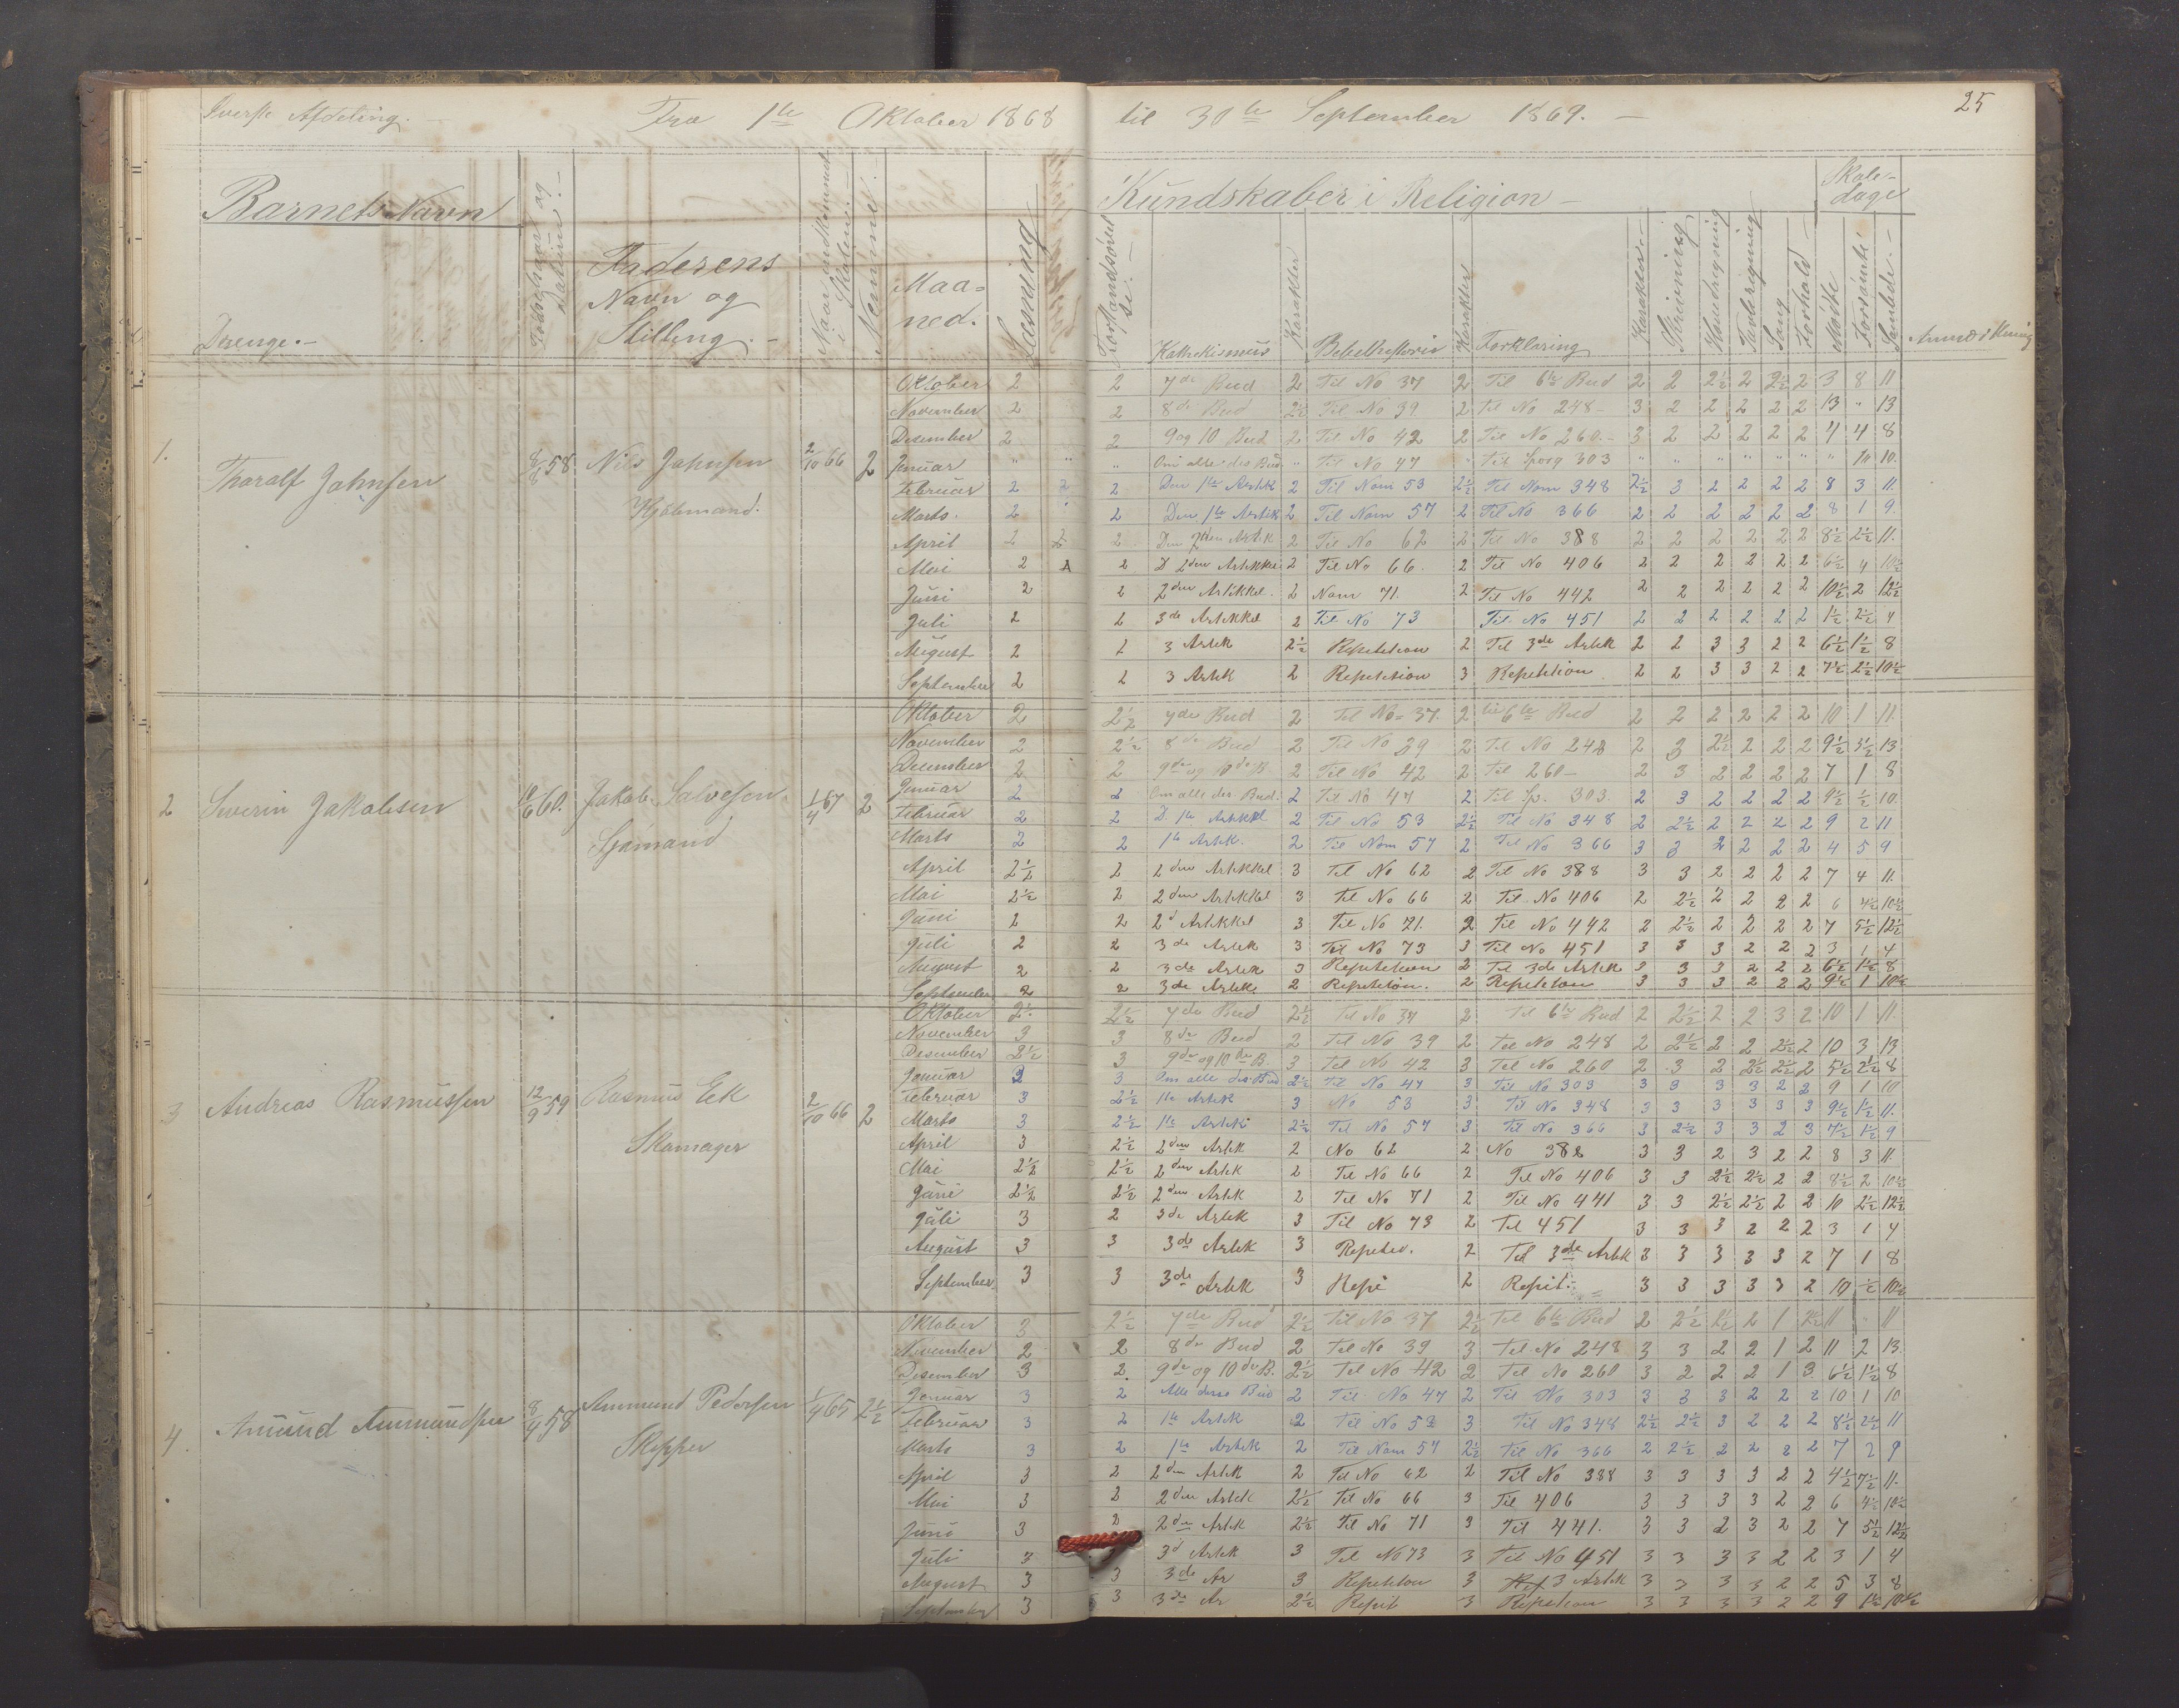 Øverste Afdeling. Fra 1ste Oktober 1868 til 30te September 1869. 25
Barnets Navn
Drenge.
Fødselsaar og Datum.
Faderens Navn og Stilling.
Naar indkommet i Skolen.
Nemme.
Maaned.
Læsning
Forstandsøvelse.
Kundskaber i Religion
Kathekismus Karakter Bibelhistorie Karakter Forklaring Karakter
Skrivning Sang Forhold
Skoledage
Mødte Forsømte Samlede
Anmærkning
1. Tharalf Jahnsen 8/8 58 Nils Jahnsen Kjøbmand. 2/10 66 2
Oktober 2 2 7de Bud 2 Til No 37 2 Til 6te Bud 2 2 2½ 2 2½ 2 3 8 11
November 2 2 8de Bud 2½ Til No 39 2 Til No 248 3 2 2 2 2 2 13 " 13
Desember 2 2 9 og 10 Bud 2 Til No 42 2 Til No 260 3 2 2 2 2 2 4 4 8
Januar " " " Om alle des Bud " Til No 47 " Til Sporg 303 " " " " " " " 10 10.
Februar 2 2 2 Den 1te Artik 2 Til Nom 53 2½ Til Nom 348 2½ 3 2 2 2 2 8 3 11
Marts. 2 2 Den 1te Artik 2 Til Nom 57 2 Til No 366 2 2 2 2 2 2 8 1 9.
April 2 2 2 Den 2den Artik 2 Til No 62 2 Til No 388 2 2 2 2 2 2 8½ 2½ 11.
Mai 2 2 D 2den Artikkel 2 Til No 66. 2 Til No 406 2 2 2 2 2 2 6½ 4 10½
Juni 2 2 2den Artikkel. 2 Nom 71. 2 Til No 442 2 2 2 2 2 2 10½ 2 12½
Juli 2 2 3de Artikkel 2 Til No 73 Til No 451 2 2 2 2 2 2 1½ 2½ 4
August 2 2 3 Artik 2½ Repetition 2 Til 3de Artik 2 2 3 3 2 2 6½ 1½ 8
September 2 2 3 Artik 2 Repetition 3 Repetition 2 2 3 3 2 2 7½ 2½ 10½
2 Severin Jakobsen 60. Jakob Salvesen Sjømand 1/4 67 2
Oktober 2 2½ 7de Bud 2 Til No 37. 2 til 6te Bud 2 2 2 2 2 2 10 1 11.
November 2 2½ 8de Bud 2 Til No 39 2 Til No 248 2 3 2½ 2 2 2 9½ 3½ 13
Desember 2 2 9de og 10de B 2 Til No 42 2 Til 260 2 3 2 2 2 2 7 1 8
Januar 2 2 Om alle des Bud. 2 Til No 47 2 Til Sp. 303. 2 3 2 2 2 2 9½ ½ 10
Februar 2 2 D. 1te Artikkel 2 Til No 53 2½ Til No 348 2 2½ 2 2 2 2 9 2 11
Marts 2 2 1te Artik. 2 Til Nom 57 2 Til No 366 3 3 2 2 2 2 4 5 9
April 2½ 2 2den Artikkel 3 Til No 62 2 Til No 388 3 3 2 2 2 2 7 4 11.
Mai 2½ 2 2den Artikkel 3 Til No 66 2 Til No 406 2 2½ 2 2 2 2 6 4½ 10½
Juni 2 2 2d Artikkel 3 Til No 71. 2 Til No 442 2 2½ 2 2 2 2 7 5½ 12½
Juli 2 2 3de Artik 3 Til No 73 3 Til No 451 3 3 3 2 2 2 3 1 4
August 2 2 3de Artik 3 Repetition 2 Til 3de Artik 3 3 3 2 2 2 6½ 1½ 8
September 2 2 3de Artik 2 Repetition. 2 Repetition 3 3 3 2 2 2 9½ 1 10½
3 Andreas Rasmussen 12/9 59 Rasmus Eek Skomager 2/10 66 2
Oktober 2½ 2½ 7de Bud 2½ Til No 37 2 Til 6te Bud 2 2½ 2 2 3 2 10 1 11.
November 3 3 8de Bud 2 Til No 39 2 Til No 248 2 2½ 2 2 2½ 2 10 3 13
Desember 2½ 3 9de og 10de B. 3 Til No 42 3 Til No 260 2 3 2 2½ 2½ 2 5½ 2½ 8
Januar 2 3 Om alle des Bud 2½ Til No 47 3 Til No 303 3 3 3 3 2 2 9 1 10
Februar 3 2½ 1te Artik 3 No 53 3 Til No 348 3 3 3 3 3 3 9½ 1½ 11.
Marts 3 2½ 1te Artik 2½ Til No 57 3 Til No 366 3 2½ 3 3 2 3 7½ 1½ 9
April 3 2½ 2den Artik 2 No 62 2 No 388 3 3 2 3 2 2 8 3 11.
Mai 2½ 2½ 2den Artik 2 Til No 66 2 Til No 406 3 3 2½ 2½ 2 2 8½ 2 10½
Juni 2½ 2½ 2den Artik 2 Til No 71 2 Til No 441 3 3 2½ 2½ 2 2 10 2½ 12½
Juli 3 2 3de Artik 3 Til No 73 2 Til 451 3 3 3 2 2 2 3 1 4
August 3 3 3de Artik 3 Repetit. 2 Til 3de Artik 3 3 3 3 3 2 7 1 8
September 3 3 3de Artik 3 Repe 2 Repit. 3 3 3 3 3 2 10 ½ 10½
4. Amund Ammundsen 8/4 58 Ammund Pedersen Skipper 1/4 65 2½
Oktober 3 2½ 7de Bud 2½ Til No 37 2½ Til 6te Bud 2 2½ 2½ 2 1 2½ 11 " 11
November 2 2 8de Bud 2 Til No 39 3 Til No 248 3 3 2 2 1 2 11 2 13.
Desember 3 2. 9de og 10de B. 2½ Til No 42 2 Til No 260 3 2 2 2 1 3 6½ 1½ 8
Januar 3 2 Alle disse Bud 2 Til No 47 2 Til No 303 3 3 3 2 2 2 10 1 10
Februar 3 2 1te Artik 2 Til No 53 3 Til No 348 2½ 2½ 3 2 2 2 8½ 2½ 11
Marts 3 2 1te Artik 2 Til Nom 57 2½ Til No 366 2 2½ 2 2 2 2 7 2 9
April 3 2 2den Artik 2 Til No 62 2 Til No 388 3 3 3 3 2 2 4½ 7½ 11.
Mai 3 2 2den Artik 2½ Til No 66 3 Til 406 3 3 3 3 2 2 6 4½ 10½
Juni 3 2 2den Artik 2½ Til No 71 3 Til 441. 3 3 2 3 2 2 7 5½ 12½
Juli 3 3d Artik 3 Til No 73 3 Til No 451 3 3 3 3 2 2 3 1 4
August 3 3 3de Ar 3 Repetition 3 3 Artik 3 3 3 3 2 2 5 3 8
September 3 3 3de Ar 2½ Repit 3 Repetition 3 3 3 3 2 2 9 1½ 10½